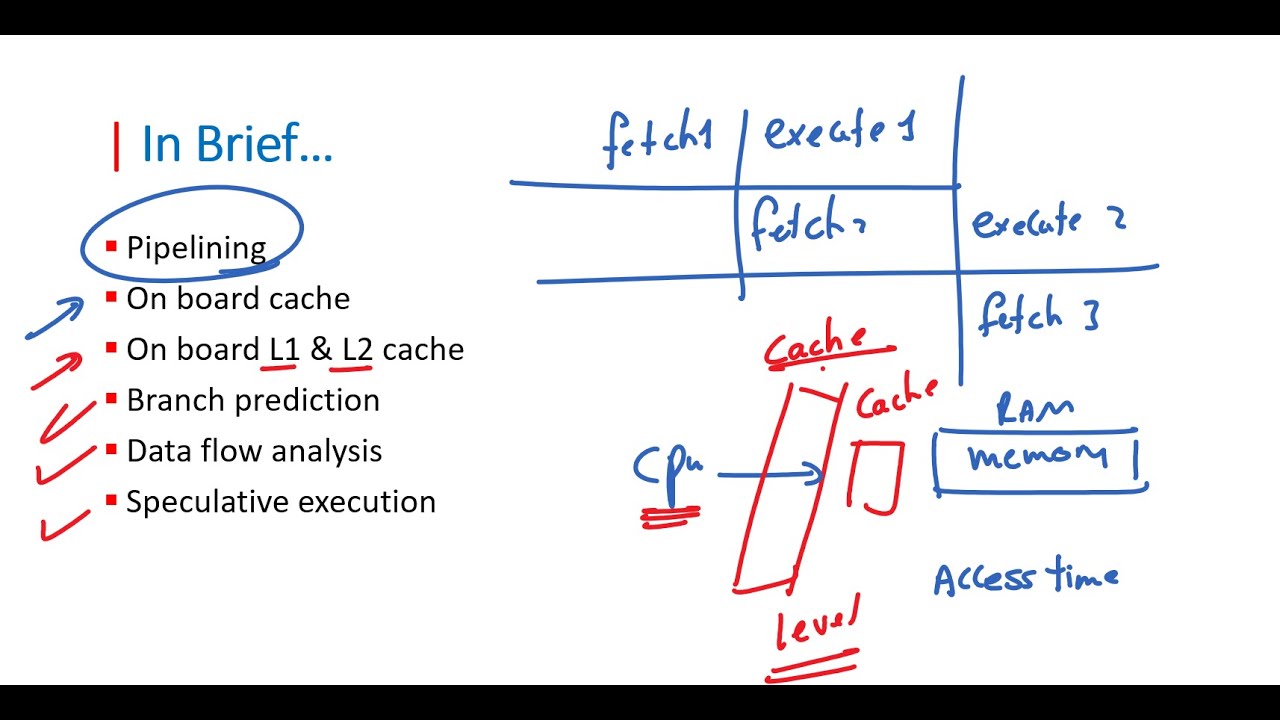 | In Brief...
▪ Pipelining
▪ On board cache
▪ On board L1 & L2 cache
▪ Branch prediction
▪ Data flow analysis
▪ Speculative execution
fetch1 execute 1
fetch 2 execute 2
fetch 3
Cache
Cache
RAM
Cpu
memory
Access time
level